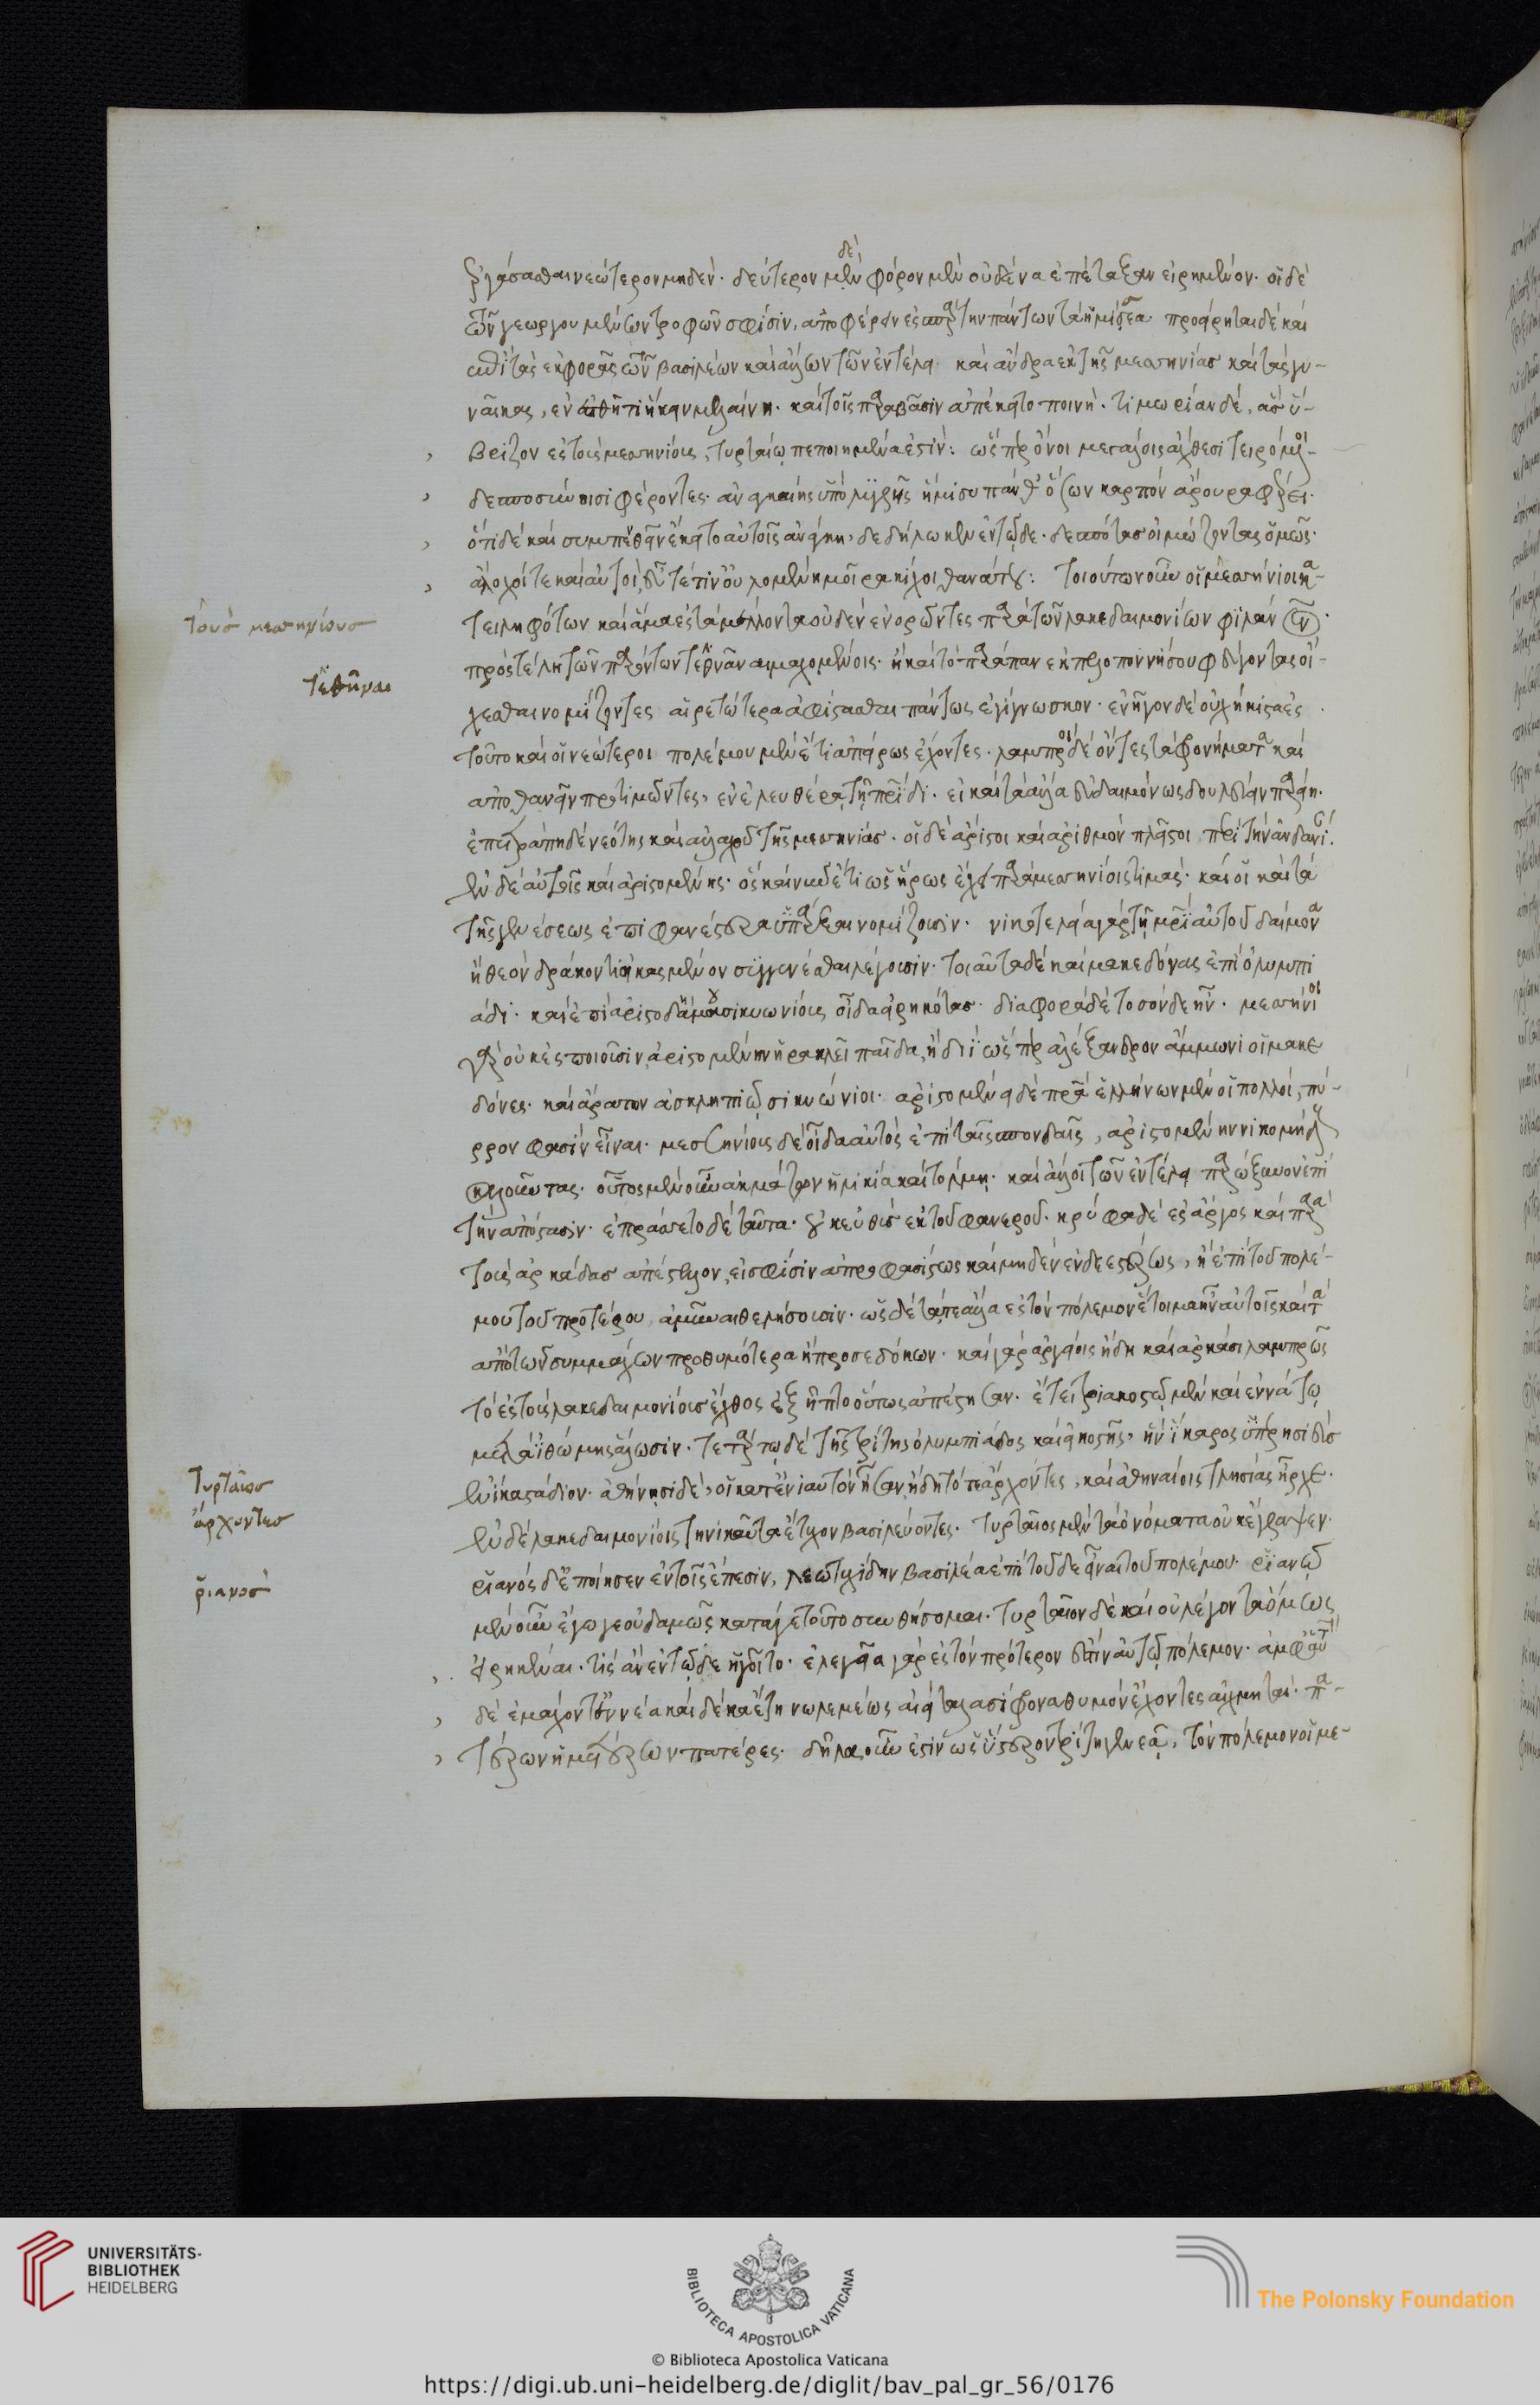 ἐργάσασθαι νεώτερον μηδέν· δεύτερον μὲν δὲ φόρον μὲν οὐδένα ἐπέταξαν εἰρημένον· οἱ δὲ
τῶν γεωργουμένων τροφῶν σφίσιν, ἀποφέρειν ἐς σπάρτην πάντων τὰ ἡμίσεα προείρηται δὲ καὶ
ἐπὶ τὰς ἐκφορὰς τῶν βασιλέων καὶ ἄλλων τῶν ἐν τέλει καὶ ἄνδρα ἐκ τῆς μεσσηνίας καὶ τὰς γυ-
ναῖκας, ἐν ἐσθῆτι ἥκειν μελαίνῃ. καὶ τοῖς παραβᾶσιν ἀπέκειτο ποινή. τιμωρίαν δέ, ἃς ὕ-
βριζον ἐς τοὺς μεσσηνίους, τυρταίῳ πεποιημένα ἐστίν: ὥσπερ ὄνοι μεγάλοις ἄχθεσι τειρόμενοι
δεσποσύνοισι φέροντες. ἀναγκαίης ὑπὸ λυγρῆς ἥμισυ πάνθ' ὅσων καρπὸν ἄρουρα φέρει.
ὅτι δὲ καὶ συμπενθεῖν ἔκειτο αὐτοῖς ἀνάγκη, δεδήλωκεν ἐν τῷδε. δεσπότας οἰμώζοντας ὁμῶς.
ἄλοχοί τε καὶ αὐτοί, εὖτέ τιν' οὐλομένη μοῖρα κίχοι θανάτου: τοιούτων οὖν οἱ μεσσήνιοι κα-
τειληφότων καὶ ἅμα ἐς τὰ μέλλοντα οὐδὲν ἐνορῶντες παρὰ τῶν λακεδαιμονίων φιλάν ων.
πρός τέλη τῶν παρόντων τεθνᾶναι μαχομένοις. ἢ καὶ τὸ παράπαν ἐκ πελοποννήσου φεύγοντας οἴ-
χεσθαι νομίζοντες αἱρετώτερα ἀφίστασθαι πάντως ἐγίγνωσκον. ἐνῆγον δὲ οὐχ ἥκιστα ἐς
τοῦτο καὶ οἱ νεώτεροι πολέμου μὲν ἔτι ἀπείρως ἔχοντες. λαμπροὶ δὲ ὄντες τὰ φρονήματα καὶ
ἀποθανεῖν προτιμῶντες, ἐν ἐλευθέρᾳ τῇ πατρίδι. εἰ καὶ τὰ ἄλλα εὐδαιμόνως δουλεύειν παρείη.
ἐπετράπη δὲ νεότης καὶ ἀλλαχοῦ τῆς μεσσηνίας. οἱ δὲ ἄριστοι καὶ ἀριθμὸν πλεῖστοι περὶ τὴν ἀνδανί.
ἐν δὲ αὐτοῖς καὶ ἀριστομένης. ὃς καὶ νῦν ἔτι ὡς ἥρως ἔχει παρὰ μεσσηνίοις τιμάς. καὶ οἱ καὶ τὰ
τῆς γενέσεως ἐπιφανέστερα ὑπάρξαι νομίζουσιν. νικοτελείᾳ γὰρ τῇ μητρὶ αὐτοῦ δαίμονα
ἢ θεὸν δράκοντι εἰκασμένον συγγενέσθαι λέγουσιν. τοιαῦτα δὲ καὶ μακεδόνας ἐπὶ ὀλυμπι
άδι. καὶ ἐπὶ ἀριστοδάμᾳ σικυωνίους οἶδα εἰρηκότας. διάφορα δὲ τοσόνδε ἦν. μεσσήνιοι
γὰρ οὐκ ἐσποιοῦσιν ἀριστομένην ἡρακλεῖ παῖδα, ἢ διΐ ὥσπερ ἀλέξανδρον ἄμμωνι οἱ μακε
δόνες. καὶ ἄρατον ἀσκληπιῷ σικυώνιοι. ἀριστομένει δὲ πατέρα ἑλλήνων μὲν οἱ πολλοί, πύ-
ρρον φασὶν εἶναι. μεσσηνίους δὲ οἶδα αὐτὸς ἐπὶ ταῖς σπονδαῖς, ἀριστομένην νικομήδους
καλοῦντας. οὗτος μὲν οὖν ἀκμάζων ἡλικίᾳ καὶ τόλμῃ. καὶ ἄλλοι τῶν ἐν τέλει παρώξυνον ἐπὶ
τὴν ἀπόστασιν. ἐπράσσετο δὲ ταῦτα. οὐκ εὐθὺς ἐκ τοῦ φανεροῦ. κρύφα δὲ ἐς ἄργος καὶ παρὰ
τοὺς ἀρκάδας ἀπέστελλον, εἰ σφίσιν ἀπροφασίστως καὶ μηδὲν ἐνδεεστέρως, ἢ ἐπὶ τοῦ πολέ-
μου τοῦ προτέρου ἀμῦναι θελήσουσιν. ὡς δὲ τά τε ἄλλα ἐς τὸν πόλεμον ἕτοιμα ἦν αὐτοῖς καὶ τὰ
ἀπὸ τῶν συμμάχων προθυμότερα ἢ προσεδόκων. καὶ γὰρ ἀργείοις ἤδη καὶ ἀρκάσι λαμπρῶς
τὸ ἐς τοὺς λακεδαιμονίους ἔχθος ἐξῆπτο οὕτως ἀπέστησαν. ἔτει τριακοστῷ μὲν καὶ ἐννάτῳ
μετὰ ἰθώμης ἅλωσιν. τετάρτῳ δὲ τῆς τρίτης ὀλυμπιάδος καὶ εἰκοστῆς, ἣν ἴκαρος ὑπερησιεὺς
ἐνίκα στάδιον. ἀθήνῃσι δέ, οἱ κατ' ἐνιαυτὸν ἦσαν ἤδη τότε ἄρχοντες, καὶ ἀθηναίοις τλησίας ἦρχε.
ἐν δὲ λακεδαιμονίοις τηνικαῦτα ἔτυχον βασιλεύοντες. τυρταῖος μὲν τὰ ὀνόματα οὐκ ἔγραψεν.
ῥιανὸς δ' ἐποίησεν ἐν τοῖς ἔπεσιν, λεωτυχίδην βασιλέα ἐπὶ τοῦδε εἶναι τοῦ πολέμου. ῥιανῷ
μὲν οὖν ἔγωγε οὐδαμῶς κατά γε τοῦτο συνθήσομαι. τυρταῖον δὲ καὶ οὐ λέγοντα ὅμως
εἰρηκέναι. τις ἂν ἐν τῷδε ἡγοῖτο. ἐλεγεῖα γὰρ ἐς τὸν πρότερον ἐστὶν αὐτῷ πόλεμον. ἀμφ' αὐτὴ
δὲ ἐμάχοντ' ἐννέα καὶ δέκα ἔτη νωλεμέως αἰεὶ ταλασίφρονα θυμὸν ἔχοντες αἰχμηταί. πα-
τέρων ἡμετέρων πατέρες. δῆλα οὖν ἐστὶν ὡς ὕστερον τρίτῃ γενεᾷ, τὸν πόλεμον οἱ με-
τοὺς μεσσηνίους
τεθῆναι
Τυρταῖος
ἄρχοντες
ῥιανὸς
UNIVERSITÄTS-
BIBLIOTHEK
HEIDELBERG
BIBLIOTECA APOSTOLICA VATICANA
© Biblioteca Apostolica Vaticana
The Polonsky Foundation
https://digi.ub.uni-heidelberg.de/diglit/bav_pal_gr_56/0176